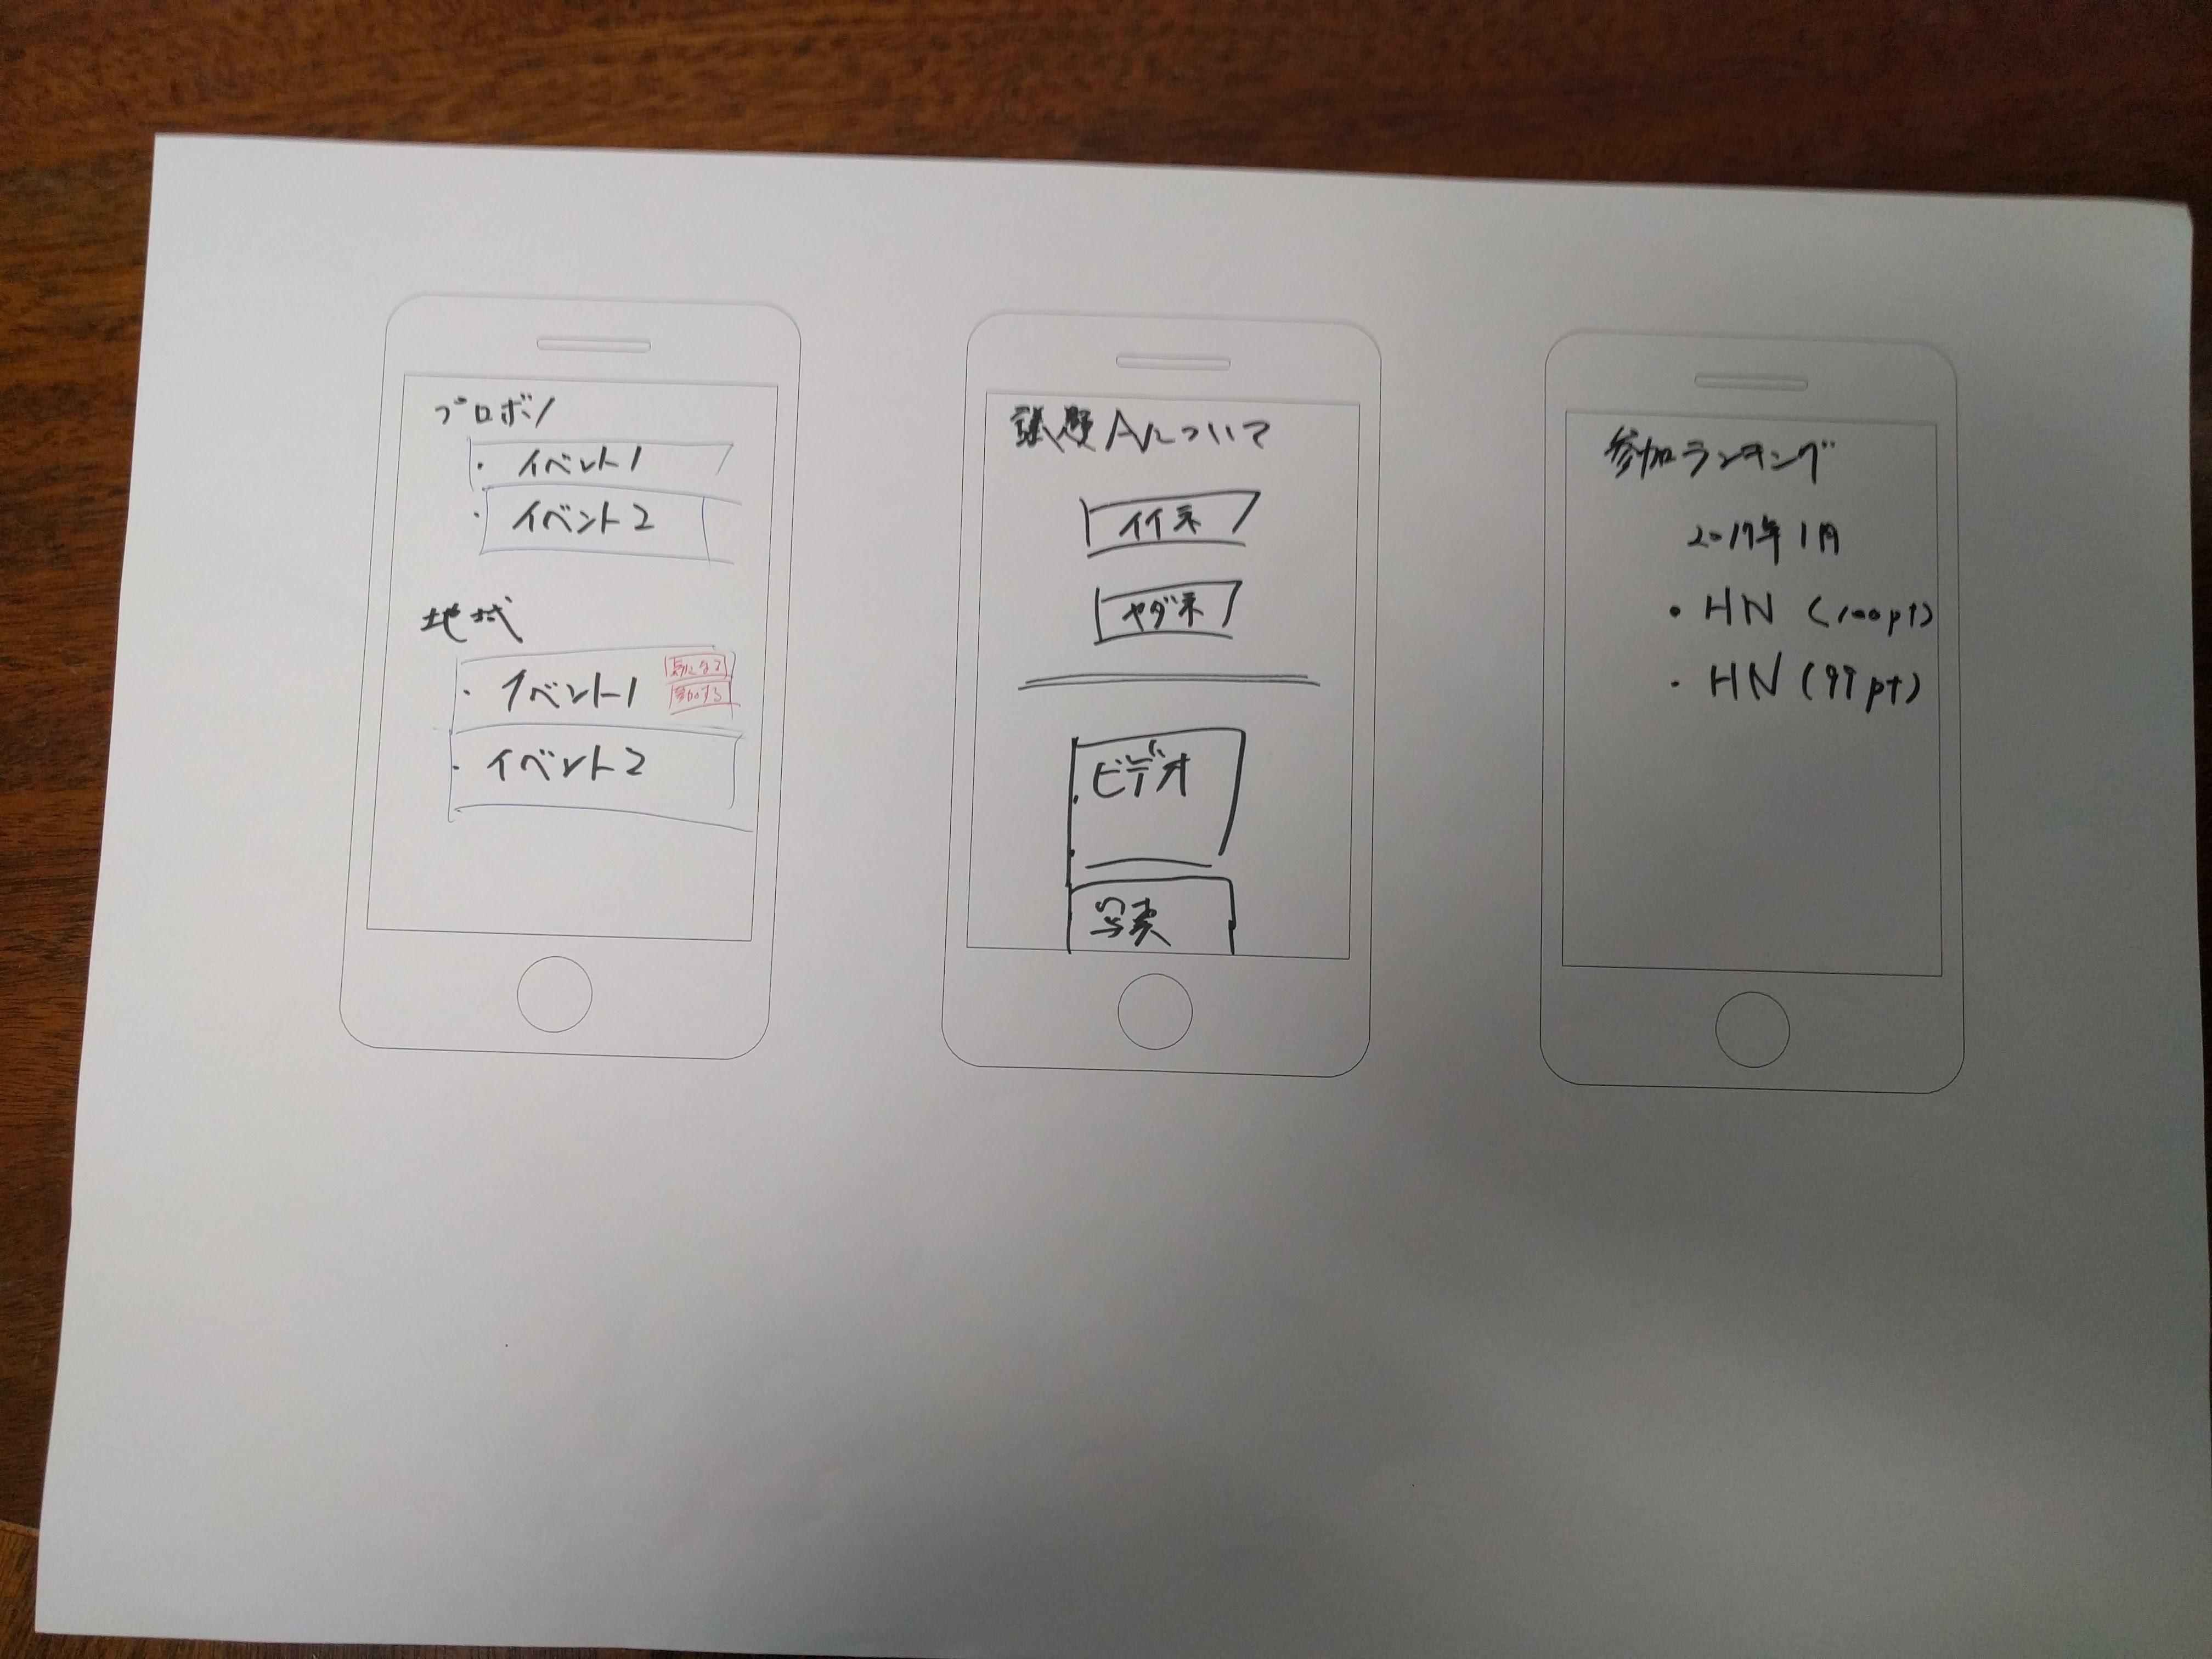 プロボノ
・イベント1
・イベント2
地域
・イベント1
気になる
参加する
・イベント2
議題Aについて
イイネ
ヤダネ
ビデオ
写真
参加ランキング
2017年1月
・HN (100pt)
・HN (99pt)